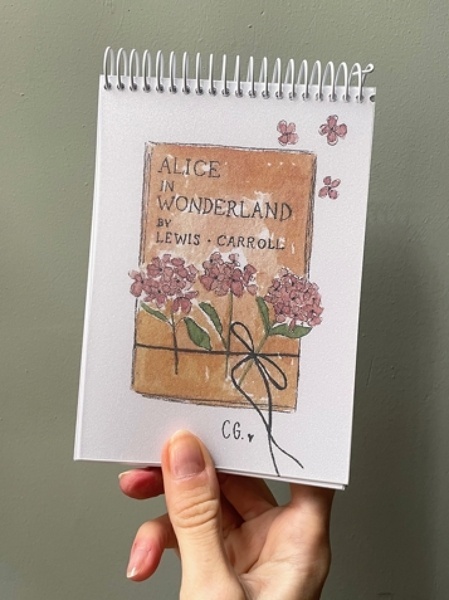 ALICE
IN
WONDERLAND
BY
LEWIS · CARROLL
CG.♥